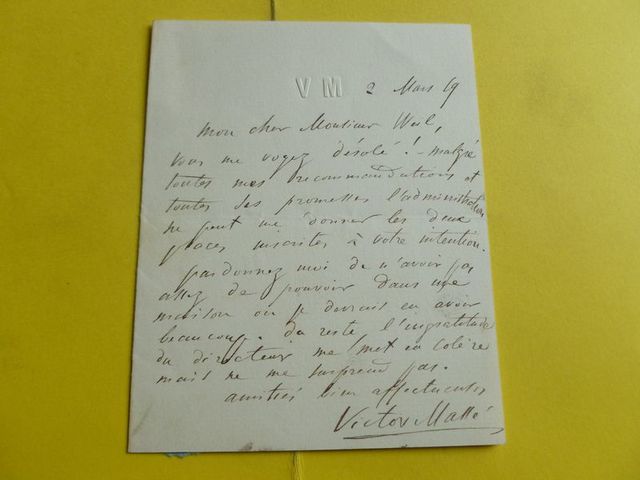 VM 2 Mars 69
Mon cher Monsieur Weil,
Vous me voyez désolé ! - malgré
toutes mes recommandations et
toutes ses promesses l'administration
ne peut me donner les deux
places inscrites à votre intention.
pardonnez moi de n'avoir pas
assez de pouvoir dans une
maison ou je devrais en avoir
beaucoup. du reste l'ingratitude
du directeur me met en colère
mais ne me surprend pas.
amitiés bien affectueuses
Victor Massé